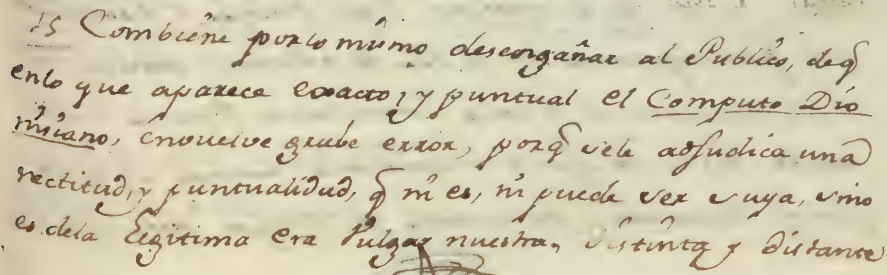 15 Combiene por lo mismo desengañar al Publico, deq̃
enlo que aparece exacto, y puntual el Computo Dio
nisiano, envuelve grabe error, porq̃ sele adjudica una
rectitud, y puntualidad, q̃ ni es, ni puede ser suya, sino
es dela Legitima era Vulgar nuestra, distinta y distante